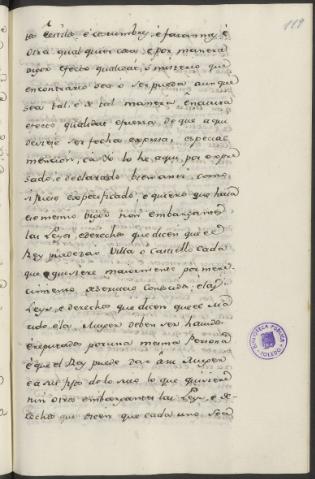 119
ta escrita, e costumbre, e fazanna, e
otra qualquier cosa e por manera
vigor efecto qualidat, o misterio que
en contrario sea o ser pueda aunque
sea tal, e de tal manera e natura
efecto qualidat, e fuerza, de que aqui
deviese ser fecha expresa, especial
mencion, ca Yo lo he aqui por expre
sado, e declarado bien ansi, como
si fuese especificado; e quiero que haya
eso mesmo vigor non embargantes
las Leyes e derechos que dicen que el
Rey puede dar Villa o Castillo cada
que quisiere maiormente por mere
cimiento, e servicio conocido; e las
Leyes e derechos que dicen que el Ma
rido e la Muger deben ser havidos
e reputados por una misma Persona
e que el Rey puede dar a su Muger
e a su fijo de lo suio lo que quisiere
nin otrosi embargantes las Leyes e de
rechos que dicen que cada uno sea
BIBLIOTECA PUBLICA
TOLEDO